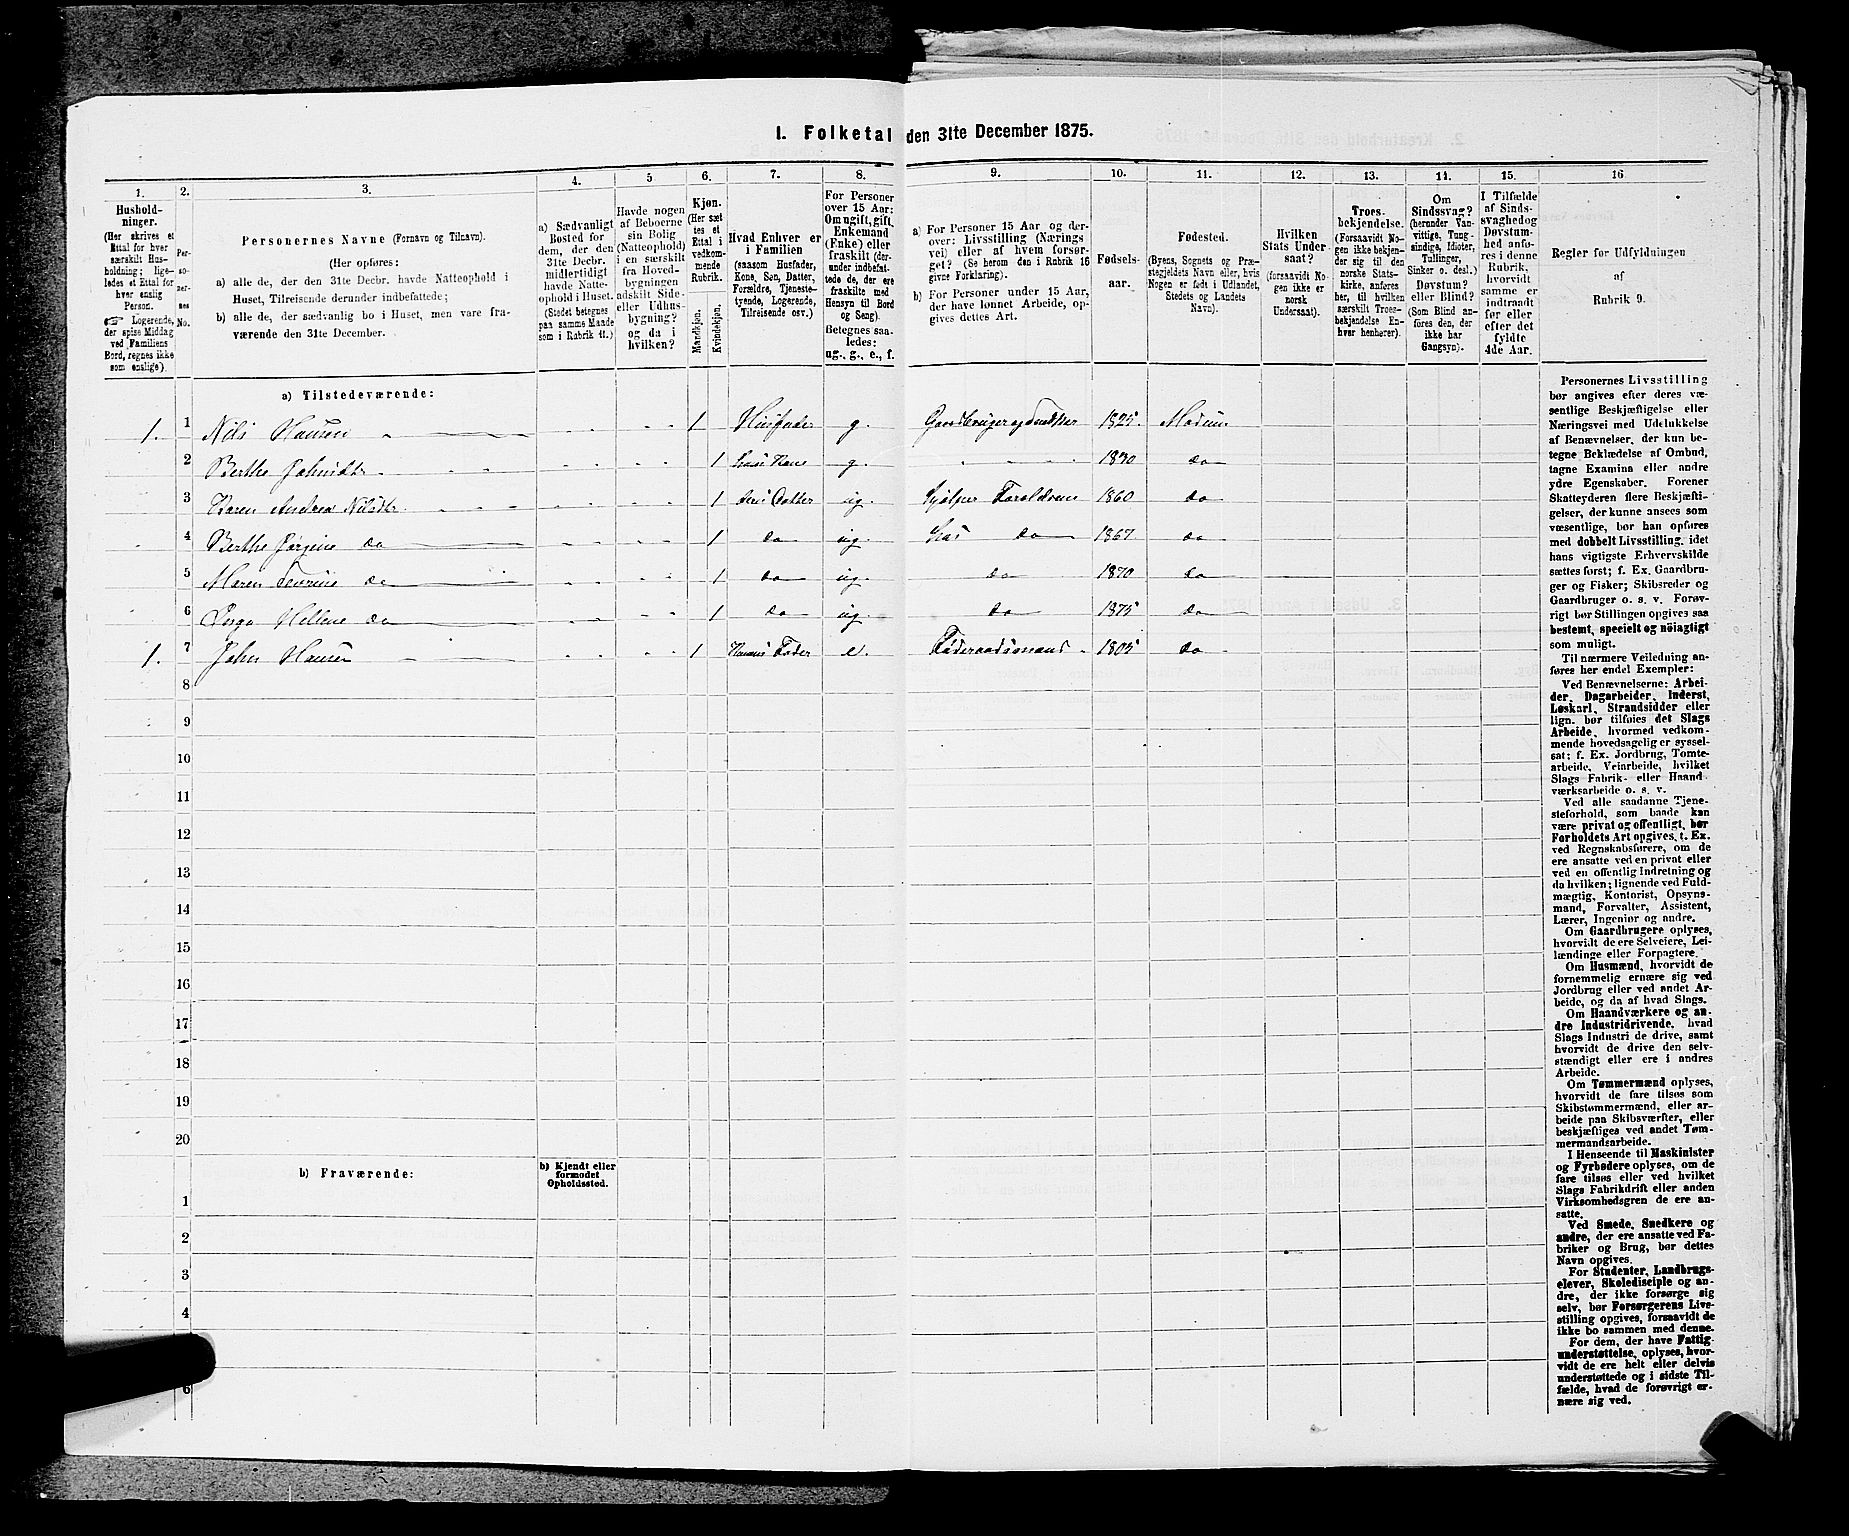 I. Folketal den 31te December 1875.
1. 2. 3. 4. 5 6. 7. 8. 9. 10. 11. 12. 13. 14. 15. 16
Hushold-
ninger.
(Her skrives et
Ettal for hver
særskilt Hus-
holdning; lige-
ledes et Ettal for
hver enslig
Person.
☞ Logerende,
der spise Middag
ved Familiens
Bord, regnes ikke
som enslige).
Per-
so-
ner-
nes
No.
Personernes Navne (Fornavn og Tilnavn).
(Her opføres:
a) alle de, der den 31te Decbr. havde Natteophold i
Huset, Tilreisende derunder indbefattede;
b) alle de, der sædvanlig bo i Huset, men vare fra-
værende den 31te December.
a) Sædvanligt
Bosted for
dem, der den
31te Decbr.
midlertidigt
havde Natte-
ophold i Huset.
(Stedet betegnes
paa samme Maade
som i Rubrik 11.)
Havde nogen
af Beboerne
sin Bolig
(Natteophold)
i en særskilt
fra Hoved-
bygningen
adskilt Side-
eller Udhus-
bygning?
og da i
hvilken?
Kjøn.
(Her sæt-
tes et
Ettal i
vedkom-
mende
Rubrik.
Mandkjøn.
Kvindekjøn.
Hvad Enhver er
i Familien
(saasom Husfader,
Kone, Søn, Datter,
Forældre, Tjeneste-
tyende, Logerende,
Tilreisende osv.)
For Personer
over 15 Aar:
Om ugift, gift,
Enkemand
(Enke) eller
fraskilt (der-
under indbefat-
tede de, der
ere fraskilte med
Hensyn til Bord
og Seng).
Betegnes saa-
ledes:
ug., g., e., f.
a) For Personer 15 Aar og der-
over: Livsstilling (Nærings
vei) eller af hvem forsør-
get? (Se herom den i Rubrik 16
givne Forklaring).
b) For Personer under 15 Aar,
der have lønnet Arbeide, op-
gives dettes Art.
Fødsels-
aar.
Fødested.
(Byens, Sognets og Præ-
stegjeldets Navn eller, hvis
Nogen er født i Udlandet,
Stedets og Landets
Navn).
Hvilken
Stats Under-
saat?
(forsaavidt No-
gen ikke er
norsk
Undersaat).
Troes-
bekjendelse.
(Forsaavidt No-
gen ikke bekjen-
der sig til den
norske Stats-
kirke, anføres
her, til hvilken
særskilt Troes-
bekjendelse En-
hver henhører).
Om
Sindssvag?
(herunder Van-
vittige, Tung-
sindige, Idioter,
Tullinger,
Sinker o. desl.)
Døvstum?
eller Blind?
(Som Blind an-
føres den, der
ikke har
Gangsyn).
I Tilfælde
af Sinds-
svaghed og
Døvstum-
hed anfø-
res i denne
Rubrik,
hvorvidt
samme er
indtraadt
før eller
efter det
fyldte
4de Aar.
Regler for Udfyldningen
af
Rubrik 9.
a) Tilstedeværende:
1. 1 Nils Hansen 1 Husfader g. 1825 Modum
2 Berthe Johnsdtr. 1 hans Kone g. 1830 do
3 Karen Andrea Nilsdtr. 1 deres Datter ug. hjælper Forældrene 1860 do
4 Berthe Jørgine do 1 do ug. do 1867 do
5 Maren do 1 do ug. do 1870 do
6 Hellene do 1 do ug. do 1875 do
1. 7 John Hansen 1 Fader e. Føderaadsmand 1805 do
8
9
10
11
12
13
14
15
16
17
18
19
20
b) Fraværende:
b) Kjendt eller
formodet
Opholdssted.
1
2
3
4
6
Personernes Livsstilling
bør angives efter deres væ-
sentlige Beskjæftigelse eller
Næringsvei med Udelukkelse
af Benævnelser, der kun be-
tegne Beklædelse af Ombud,
tagne Examina eller andre
ydre Egenskaber. Forener
Skatteyderen flere Beskjæfti-
gelser, der kunne ansees som
væsentlige, bør han opføres
med dobbelt Livsstilling, idet
hans vigtigste Erhvervskilde
sættes først; f. Ex. Gaardbru-
ger og Fisker; Skibsreder og
Gaardbruger o. s. v. Forøv-
rigt bør Stillingen opgives saa
bestemt, specielt og nöiagtigt
som muligt.
Til nærmere Veiledning an-
føres her endel Exempler:
Ved Benævnelserne: Arbei-
der, Dagarbeider, Inderst,
Løskarl, Strandsidder eller
lign. bør tilføies det Slags
Arbeide, hvormed vedkom-
mende hovedsagelig er syssel-
sat; f. Ex. Jordbrug, Tomte-
arbeide, Veiarbeide, hvilket
Slags Fabrik- eller Haand-
værksarbeide o. s. v.
Ved alle saadanne Tjene-
steforhold, som baade kan
være privat og offentligt, bør
Forholdets Art opgives, t. Ex.
ved Regnskabsførere, om de
ere ansatte ved en privat eller
ved en offentlig Indretning og
da hvilken; lignende ved Fuld-
mægtig, Kontorist, Opsyns-
mand, Forvalter, Assistent,
Lærer, Ingeniør og andre.
Om Gaardbrugere oplyses,
hvorvidt de ere Selveiere, Lei-
lændinge eller Forpagtere.
Om Husmænd, hvorvidt de
fornemmelig ernære sig ved
Jordbrug eller ved andet Ar-
beide, og da af hvad Slags.
Om Haandværkere og an-
dre Industridrivende, hvad
Slags Industri de drive, samt
hvorvidt de drive den selv-
stændigt eller ere i andres
Arbeide.
Om Tømmermænd oplyses,
hvorvidt de fare tilsøs som
Skibstømmermænd, eller ar-
beide paa Skibsværfter, eller
beskjæftiges ved andet Tøm-
mermandsarbeide.
I Henseende til Maskinister
og Fyrbødere oplyses, om de
fare tilsøs eller ved hvilket
Slags Fabrikdrift eller anden
Virksomhedsgren de ere an-
satte.
Ved Smede, Snedkere og
andre, der ere ansatte ved Fa-
briker og Brug, bør dettes
Navn opgives.
For Studenter, Landbrugs-
elever, Skoledisciple og an-
dre, der ikke forsørge sig
selv, bør Forsørgerens Livs-
stilling opgives, forsaavidt de
ikke bo sammen med denne.
For dem, der have Fattig-
understøttelse, oplyses, hvor-
vidt de ere helt eller delvis
understøttede og i sidste Til-
fælde, hvad de forøvrigt er-
nære sig ved.